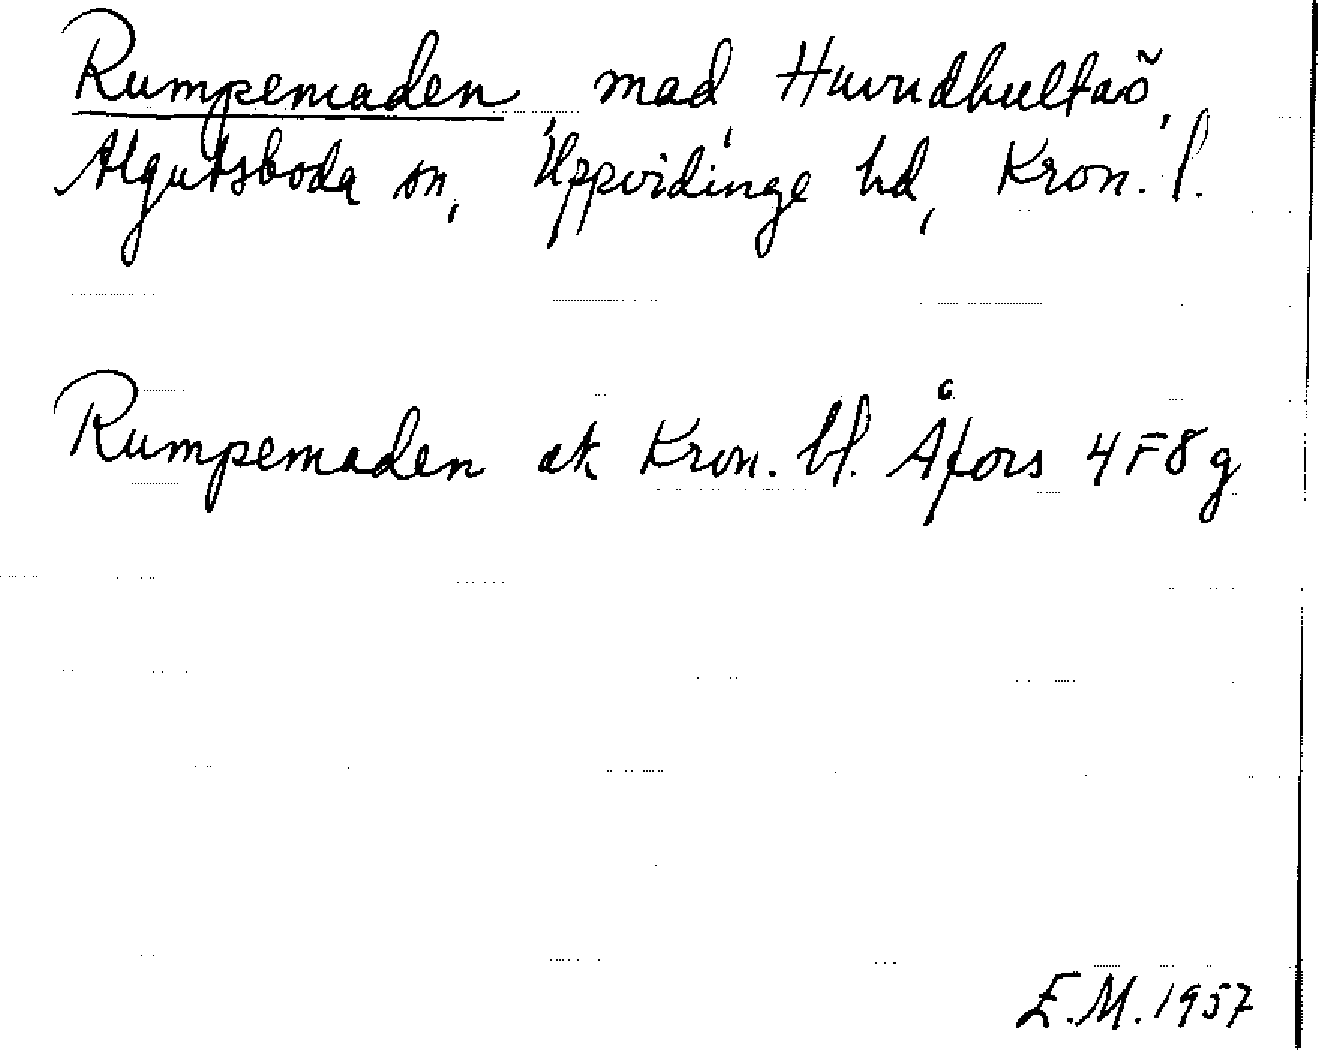 Rumpemaden, mad Huvudhultaö,
Algutsboda sn, Uppvidinge hd, Kron. l.
Rumpemaden ek Kron. bl. Åfors 4F8g
E.M. 1957